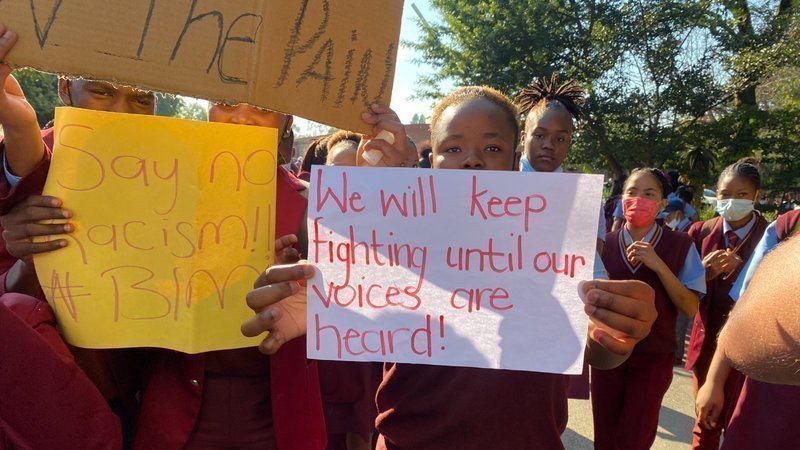 The Pain
Say no
Racism!!
#Blm
We will keep
fighting until our
voices are
heard!